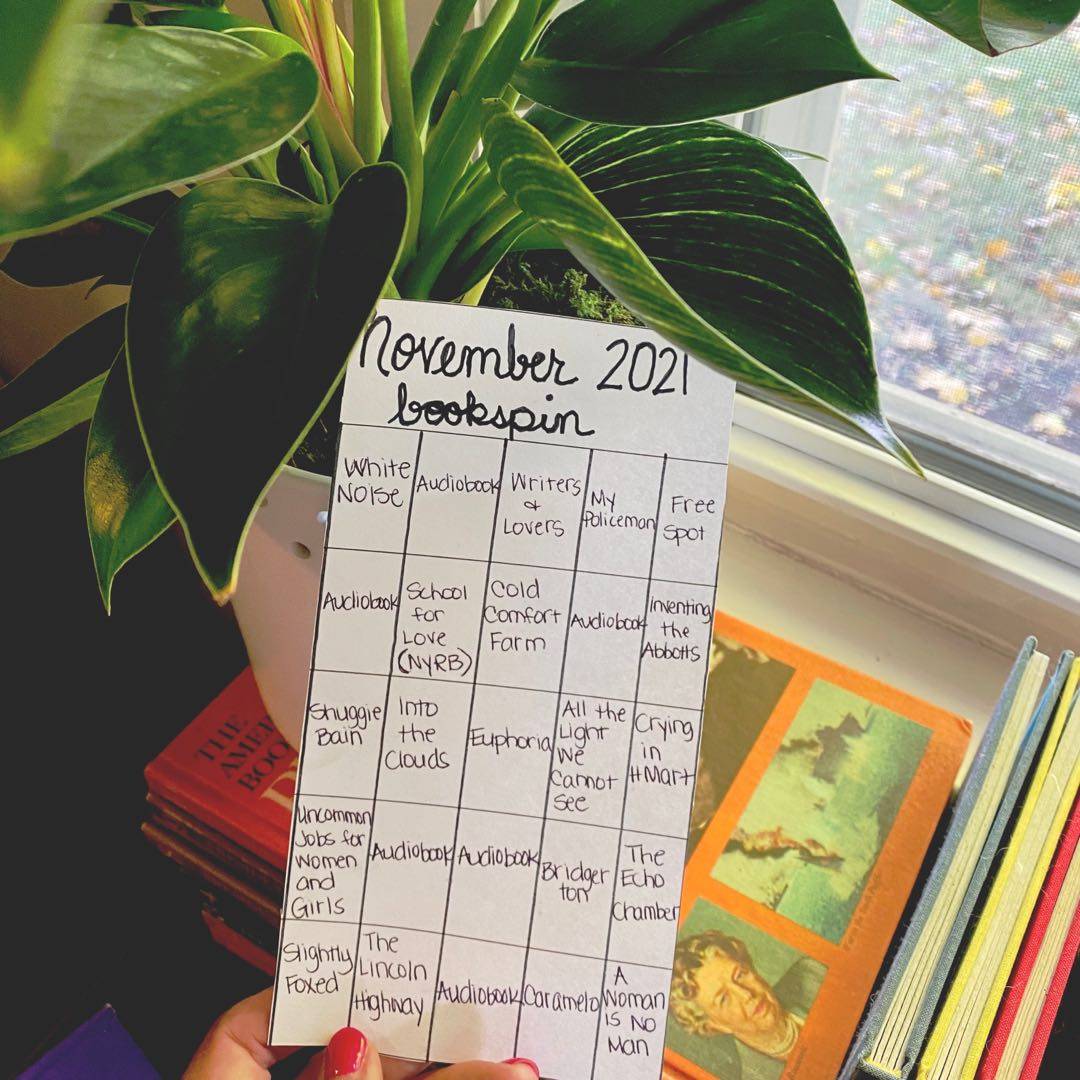 November 2021
bookspin
White
Noise
Audiobook
Writers
&
Lovers
My
Policeman
Free
Spot
Audiobook
School
for
Love
(NYRB)
Cold
Comfort
Farm
Audiobook
Inventing
the
Abbotts
Shuggie
Bain
Into
the
Clouds
Euphoria
All the
Light
We
Cannot
See
Crying
in
HMart
Uncommon
Jobs for
Women
and
Girls
Audiobook
Audiobook
Bridger
ton
The
Echo
Chamber
Slightly
Foxed
The
Lincoln
Highway
Audiobook
Caramelo
A
Woman
is No
Man
THE